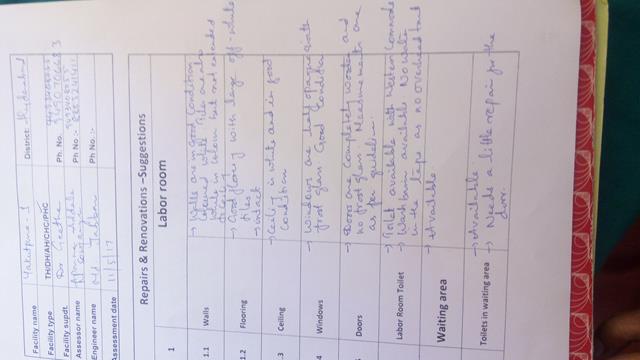 Facility name Yakutpura - 1 District: Hyderabad
Facility type TH/DH/AH/CHC/PHC
Facility supdt. Dr Geetha Ph No.
Assessor name Ph No :-
Engineer name Md Jabbar Ph No :-
Assessment date 11/5/17
Repairs & Renovations –Suggestions
1 Labor room
1.1 Walls → Walls are in Good Condition
white in colour but not extended
1.2 Flooring → Good flooring with large off-white
tiles
→ intact
.3 Ceiling → Ceiling is white and in good
condition
4 Windows → Windows are half opaque with
frost glass Good Condition
Doors → Doors are Completely wooden and
no frost glass Measurements are
as per guidelines.
Labor Room Toilet → Toilet available with western Commode
→ Wash basin available No water
in the taps as no overhead tank
Waiting area → Available
Toilets in waiting area → Available
→ Needs a little repair for the
door.